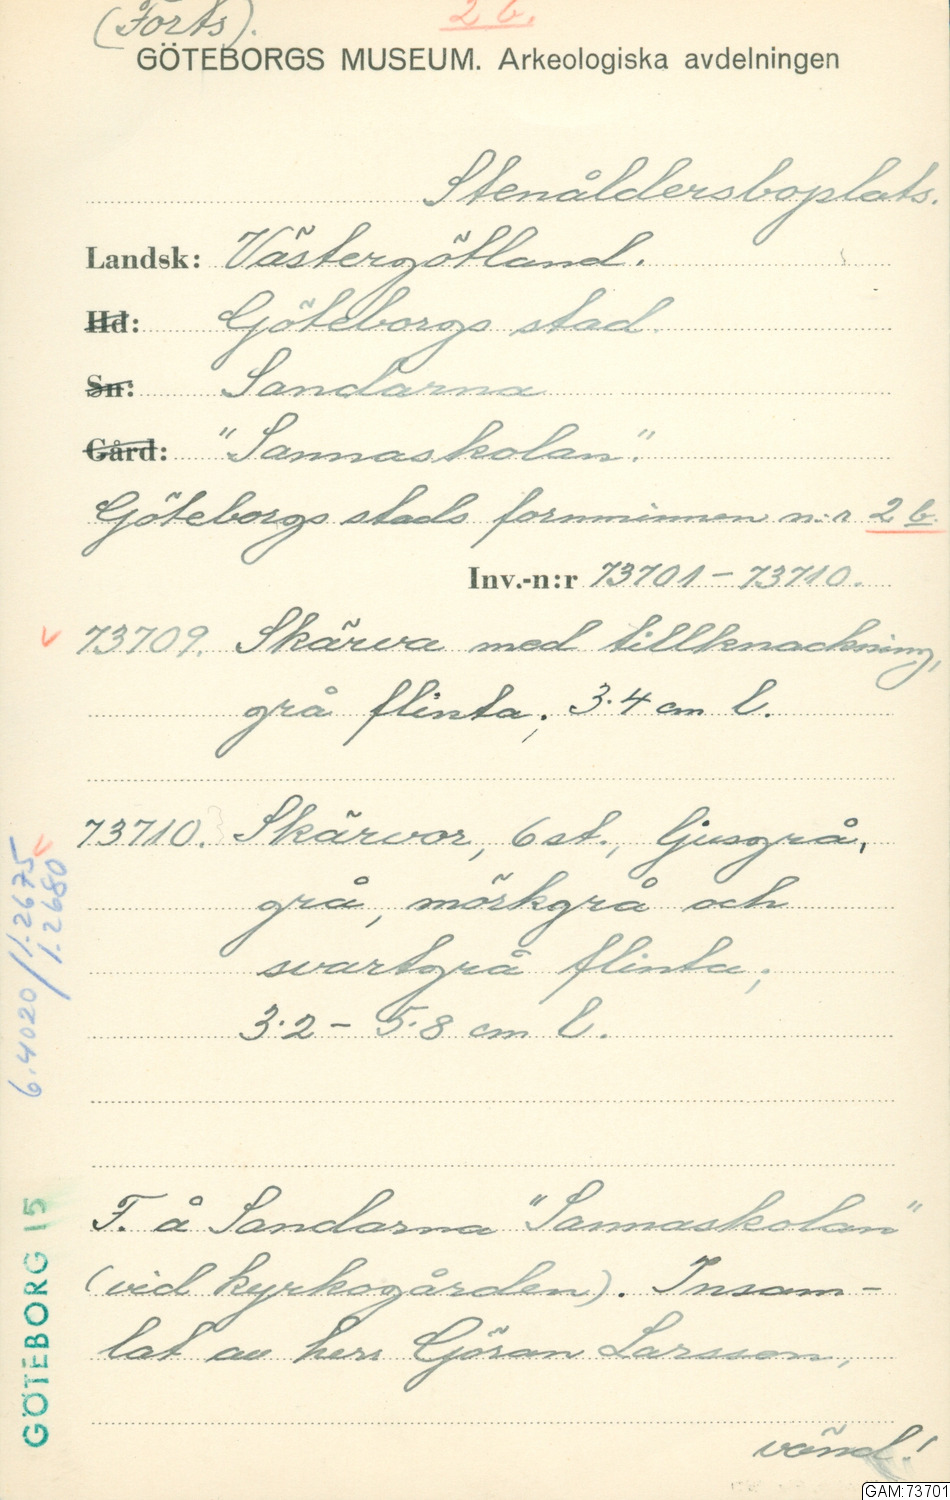 (Forts).
2 b.
GÖTEBORGS MUSEUM. Arkeologiska avdelningen
Stenåldersboplats.
Landsk: Västergötland.
Hd: Göteborgs stad.
Sn: Sandarna
Gård: "Sannaskolan".
Göteborgs stads fornminnen n:r 2 b.
Inv.-n:r 73701 – 73710.
73709. Skärva med tillknackning,
grå flinta; 3.4 cm l.
73710. Skärvor, 6 st., ljusgrå,
grå, mörkgrå och
svartgrå flinta;
3.2 – 5.8 cm l.
6.4020/1.2675
/1.2680
F. å Sandarna "Sannaskolan"
(vid kyrkogården). Insam-
lat av herr Göran Larsson,
vänd!
GÖTEBORG 15
GAM:73701